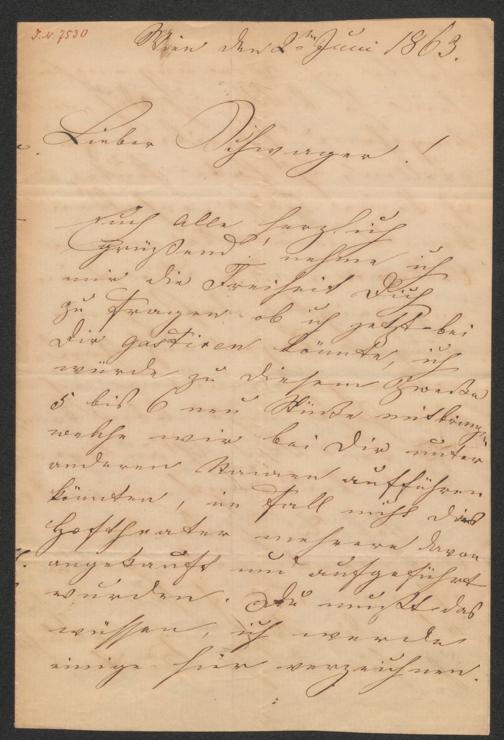 J.N. 7530
Wien den 2ten Juni 1863.
Lieber Schwager!
Euch alle herzlich
grüßend, nehme ich
mir die Freiheit Dich
zu fragen ob ich jetzt bei
Dir gastiren könnte, ich
würde zu diesem Zwecke
5 bis 6 neu Stücke mitbringen
welche wir bei Dir unter
anderen Namen aufführen
könnten, im Fall nicht das
Hoftheater mehrere davon
angekauft und aufgeführt
wurden. Du mußt das
wissen, ich werde
einige hier verzeichnen.